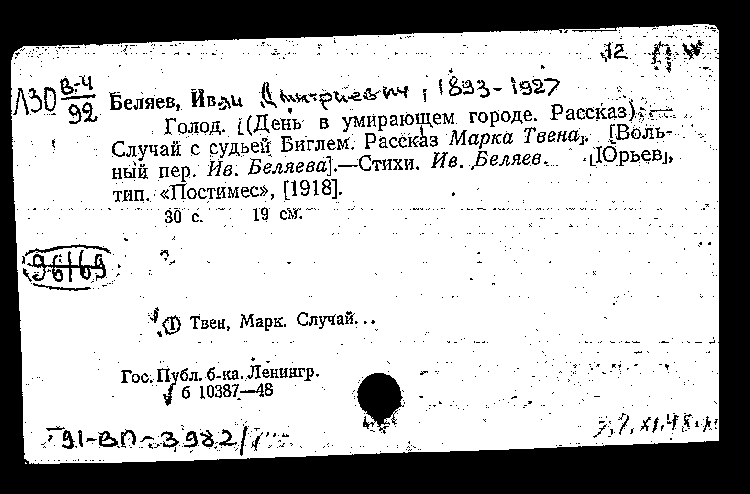 12
Л30 В-4/92
Беляев, Иван Дмитриевич, 1893-1927
Голод. [(День в умирающем городе. Рассказ). —
Случай с судьей Биглем. Рассказ Марка Твена, [Воль-
ный пер. Ив. Беляева].—Стихи. Ив. Беляев. [Юрьев],
тип. «Постимес», [1918].
30 с. 19 см.
96169
(1) Твен, Марк. Случай...
Гос. Публ. б-ка. Ленингр.
б 10387—48
91-ВП-3982/